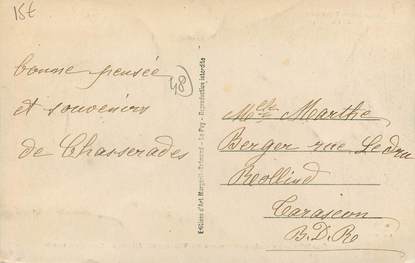 15€
bonne pensée
et souvenirs
de Chasserades
48
Editions d'Art. Margerit-Brémond - Le Puy - Reproduction interdite
Melle Marthe
Berger rue Ledru
Rollind
Tarascon
B.D.R